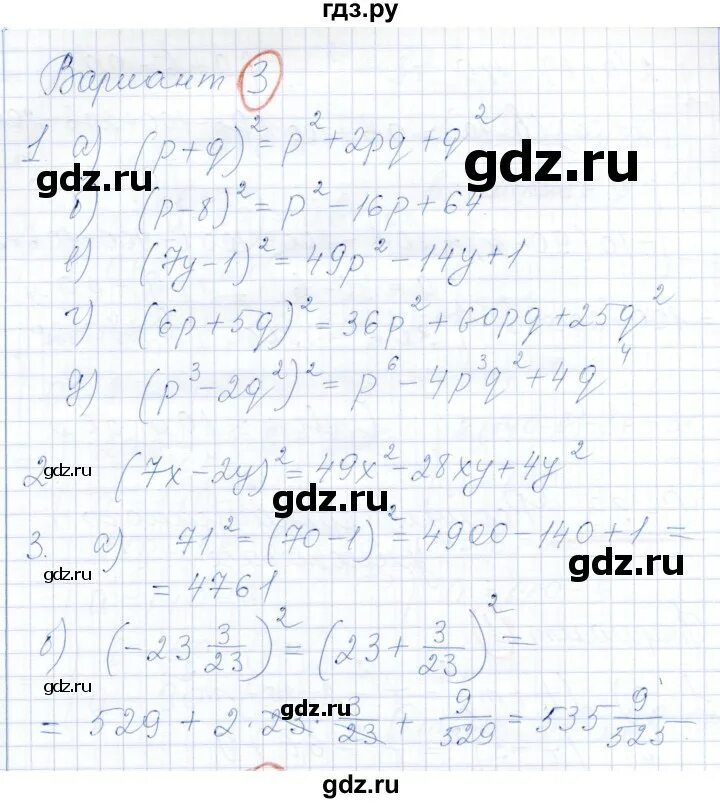 гдз.ру
Вариант 3
1. а) (p+q)² = p² + 2pq + q²
gdz.ru
gdz.ru
б) (p-8)² = p² - 16p + 64
в) (7y-1)² = 49p² - 14y + 1
г) (6p+5q)² = 36p² + 60pq + 25q²
д) (p³-2q²)² = p⁶ - 4p³q² + 4q⁴
2. (7x-2y)² = 49x² - 28xy + 4y²
gdz.ru
gdz.ru
3. а) 71² = (70-1)² = 4900 - 140 + 1 =
gdz.ru
= 4761
б) (-23 3/23)² = (23 + 3/23)² =
gdz.ru
= 529 + 2 · 23 · 3/23 + 9/529 = 535 9/523
gdz.ru
gdz.ru